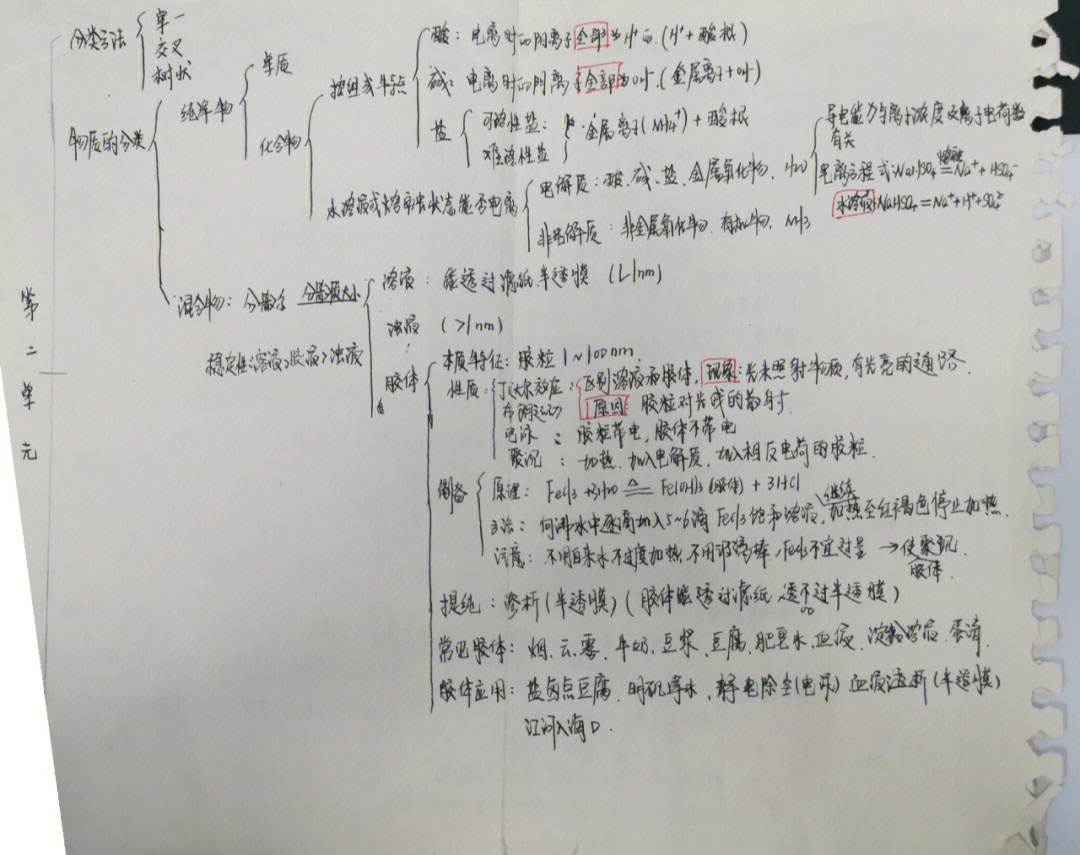 第二单元
分类方法
单一
交叉
树状
物质的分类
纯净物
单质
化合物
按组成与特点
酸：电离时的阳离子全部为H⁺的.(H⁺+酸根)
碱：电离时的阴离子全部为OH⁻.(金属离子+OH⁻)
盐
可溶性盐：
难溶性盐
金属离子(NH₄⁺)+酸根
水溶液或熔融状态能否电离
电解质：酸、碱、盐、金属氧化物、H₂O
导电能力与离子浓度及离子电荷数
有关
电离方程式:NaHSO₄ 熔融= Na⁺+HSO₄⁻
水溶液:NaHSO₄=Na⁺+H⁺+SO₄²⁻
非电解质：非金属氧化物、有机物、NH₃
混合物：分散系 分散质大小
稳定性:溶液>胶液>浊液
溶液：能透过滤纸半透膜 (<1nm)
浊液 (>1nm)
胶体
本质特征：胶粒1~100nm.
性质：
丁达尔效应：区别溶液和胶体，现象:光束照射物质，有光亮的通路.
布朗运动 原因: 胶粒对光线的散射.
电泳：胶粒带电，胶体不带电
聚沉：加热、加入电解质、加入相反电荷的胶粒.
制备
原理：FeCl₃+3H₂O =△= Fe(OH)₃(胶体)+3HCl
方法：向沸水中逐滴加入5~6滴FeCl₃饱和溶液,继续加热至红褐色停止加热.
注意：不用自来水不过度加热,不用玻璃棒,FeCl₃不宜过量→使聚沉
胶体.
提纯：渗析(半透膜)(胶体能透过滤纸、透不过半透膜)
常见胶体：烟、云、雾、牛奶、豆浆、豆腐、肥皂水、血液、淀粉溶液、蛋清.
胶体应用：盐卤点豆腐、明矾净水、静电除尘(电泳) 血液透析(半透膜)
江河入海口.